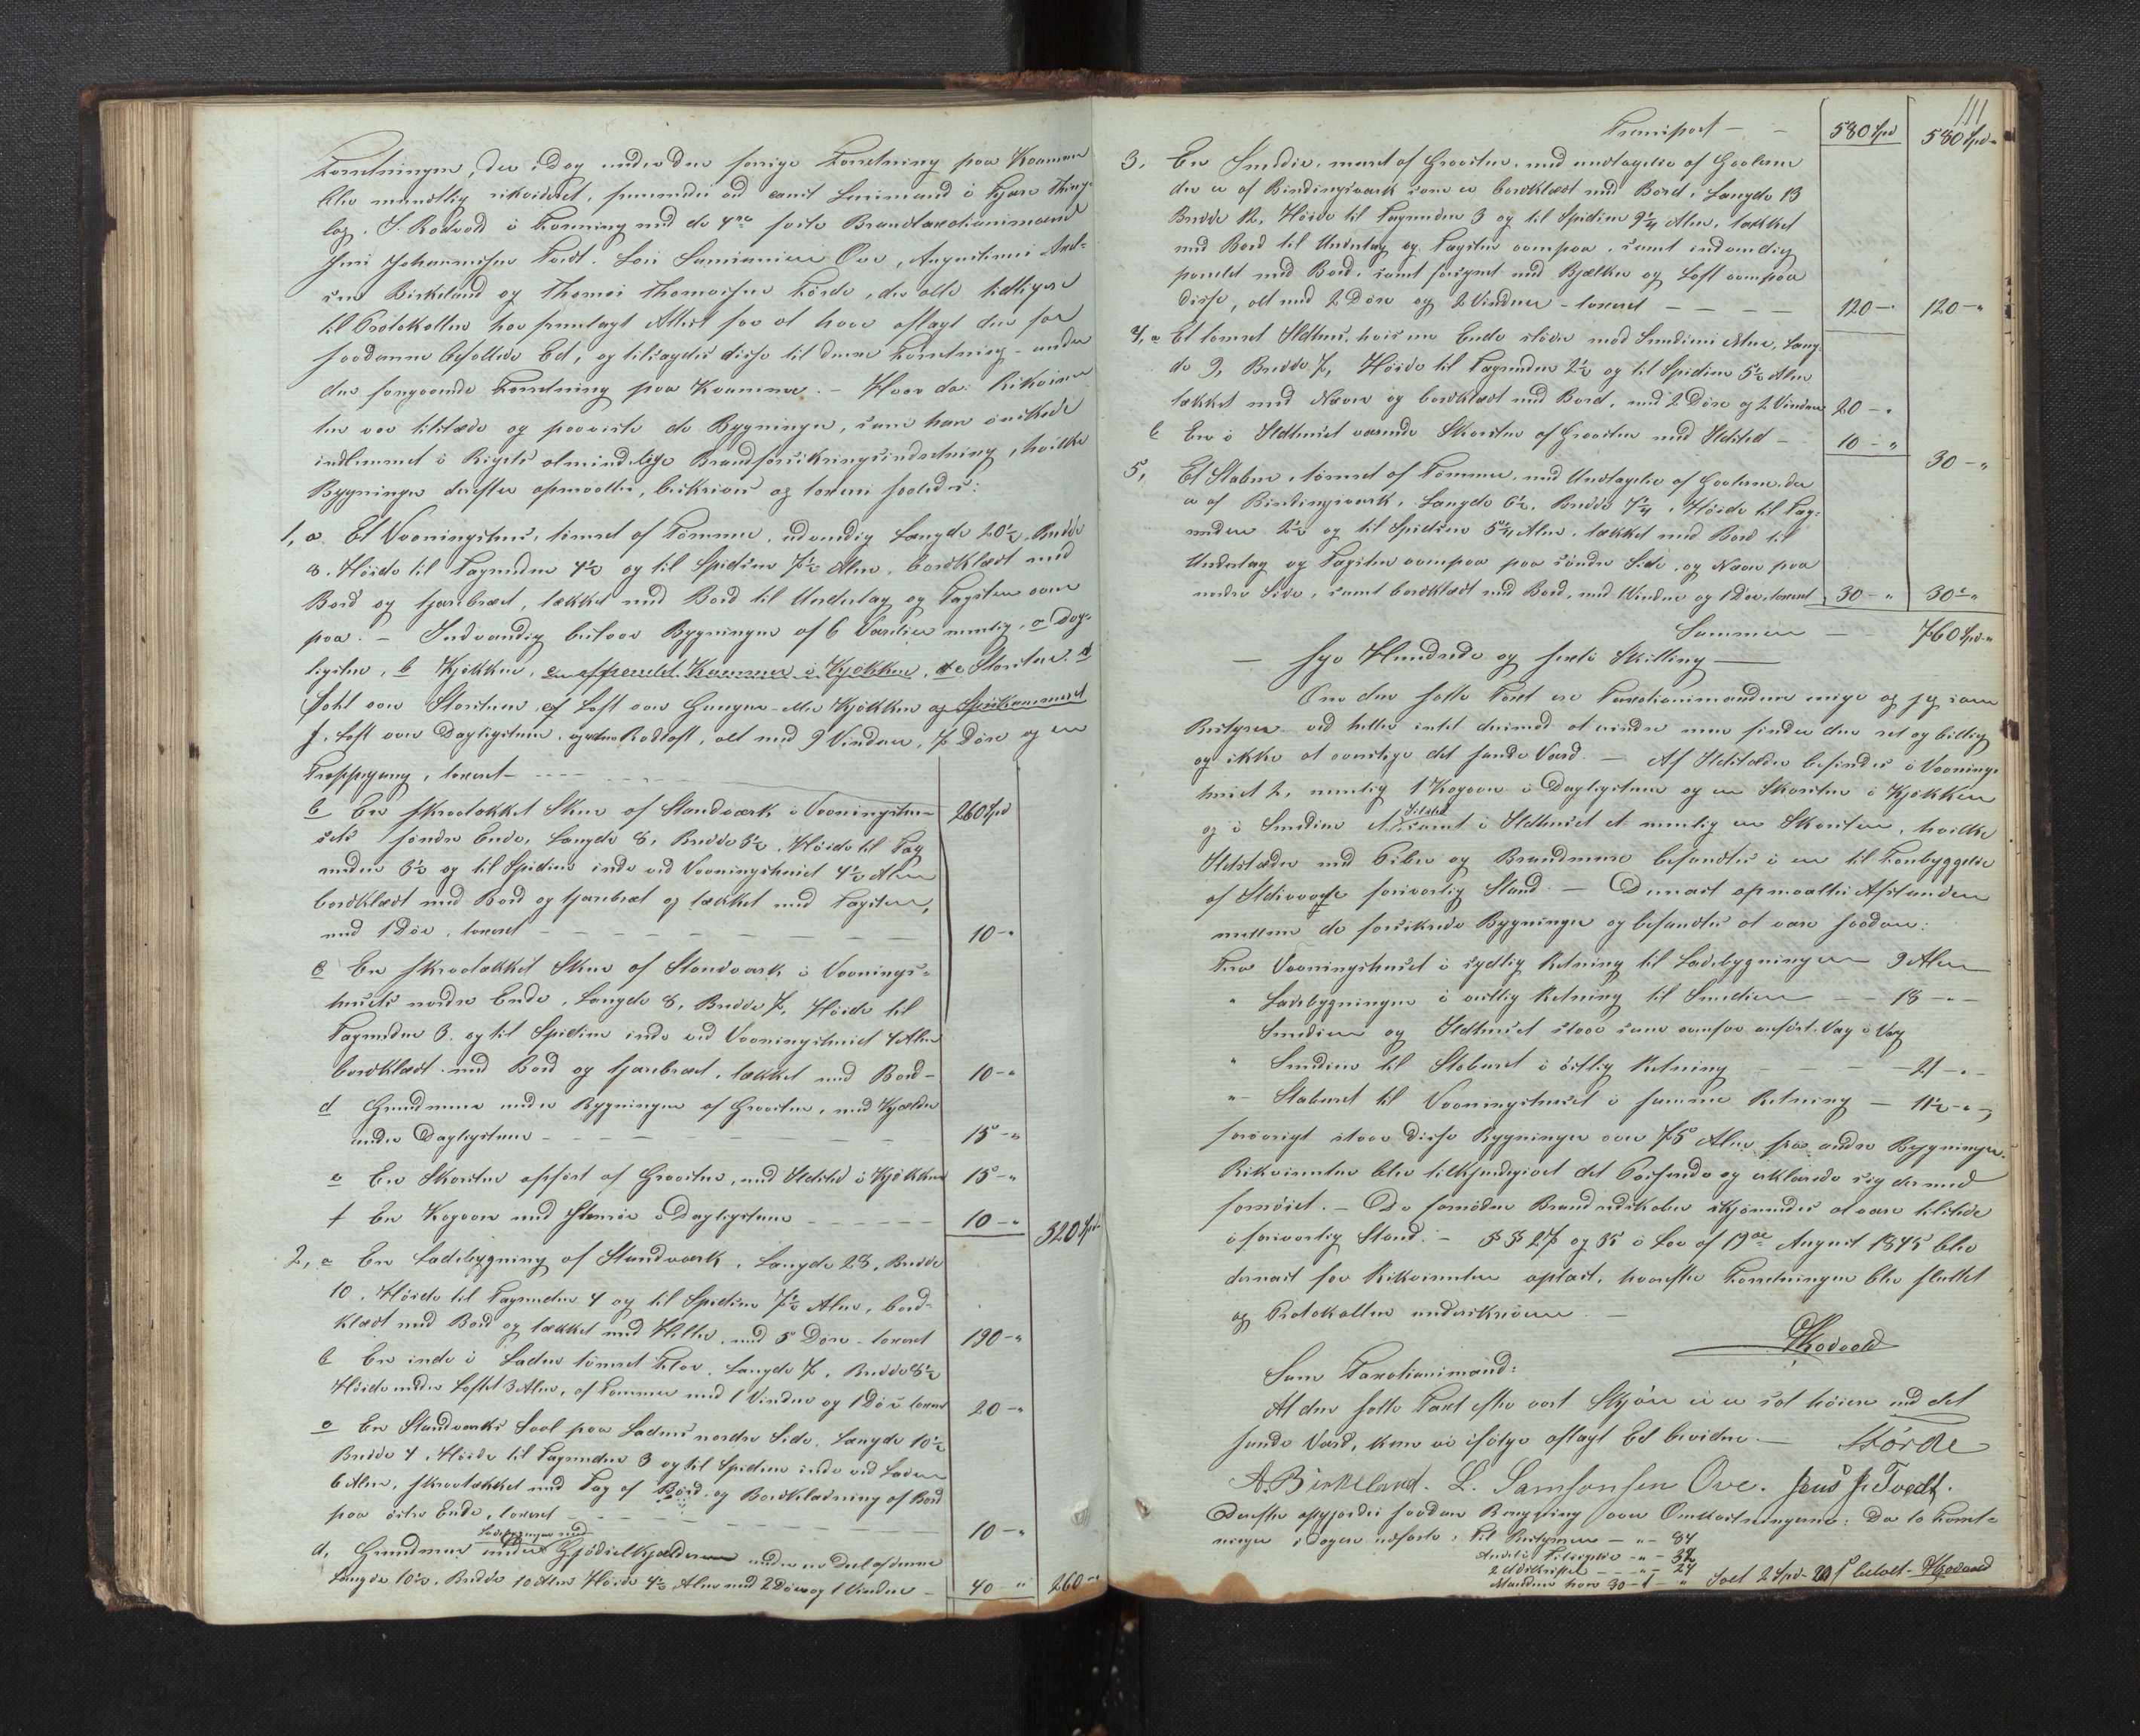 Forretningen, der i Dag under den forrige Forretning paa Kvamme
blev mundtlig rekvireret, fremmedes ved const. Lensmand i Fjære Thing-
lag, J. Rodvold i Forening med de 4re faste Brandtaxationsmænd
Jens Johannesen Tvedt, Lars Samsonsen Ove, Augustinus
Birkeland og Thomas Thomassen Förde, der alle tidligere
til Protokollen har fremlagt Attest for at have aflagt den for
saadanne befalede Ed, og tilsagdes disse til denne Forretning under
den foregaaende Forretning paa Kvamme. – Hvor da Rekviren-
ten var tilstæde og paaviste de Bygninger, som han önskede
indlemmet i Rigets almindelige Brandforsikringsindretning, hvilke
Bygninger derefter opmaaltes, beskreves og taxeres saaledes:
1, a Et Vaaningshus, tömret af Tömmer, udvendig Længde 20½, Bredde
8, Höide til Tagrenden 4½ og til Spidsen 7½ Alen, bordklædt med
Bord og tjærebrædt, tækket med Bord til Undertag og Tagsten oven
paa. – Indvendig bestaar Bygningen af 6 Værelser nemlig, a Dag-
ligstue, b Kjökken, c afpanelet Kammer i Kjökken, d Storstue, d
Sahl over Storstuen, e Loft over Gangen eller Kjökken og Spiskammeret
f. Loft over Dagligstuen, og Rodloft, alt med 9 Vinduer, 7 Döre og en
Trappegang, taxeret – 260 Spd
b En skraatækket Skuur af Standværk i Vaaningshu-
sets söndre Ende, Længde 8, Bredde 3½, Höide til Tag-
renden 3½ og til Spidsen inde ved Vaaningshuset 4½ Alen
bordklædt med Bord og tjærebræt og tækket med Tagsten,
med 1 Dör, taxeret – 10 – "
c En skraatækket Skuur af Standværk i Vaanings-
husets nordre Ende, Længde 8, Bredde 7, Höide til
Tagrenden 3 og til Spidsen inde ved Vaaningshuset 4 Alen
bordklædt med Bord og tjærebrædt, tækket med Bord – 10 – "
d Grundmuur under Bygningen af Graasten, med Kjælder
under Dagligstuen – 15 – "
e En Skorsten opfört af Graasten, med Ildsted i Kjökken 15 – "
f En Kogovn med i Dagligstuen – 10 – " 320 Spd
2, a En Ladebygning af Standværk, Længde 28, Bredde
10, Höide til Tagrenden 4 og til Spidsen 7½ Alen, bord-
klædt med Bord og tækket med Heller, med 5 Döre – taxeret 190 – "
b En inde i Laden tömret Flor, Længde 7, Bredde 8½
Höide under Loftet 3 Alen, af Tömmer med 1 Vindue og 1 Dör taxeret 20 – "
c En Standværks Sval paa Ladens nordre Side, Længde 10½
Bredde 4, Höide til Tagrenden 3 og til Spidsen inde ved Laden
6 Alen, skraatækket med Tag af Bord, og Bordklædning af Bord
paa östre Ende, taxeret – 10 – "
Ladebygningen med
d, Grundmuur under Gjödselkjælderen under en Deel af denne
Længde 10½, Bredde 10 Alen Höide 4½ Alen med 2 Döre og 1 Vindue – 40 – " 260 – "
111
Transport – – 580 Spd 580 Spd "
3, En Smedie, muret af Graasten, med undtagelse af Gavlerne
der er af Bindingsværk som er bordklædt med Bord, Længde 13
Bredde 12, Höide til Tagrenden 3 og til Spidsen 9¼ Alen, tækket
med Bord til Undertag og Tagsten ovenpaa, samt indvendig
panelet med Bord, samt forsynet med Bjælker og Loft ovenpaa
disse, alt med 2 Döre og 2 Vinduer – taxeret – 120 – " 120 – "
4, a Et tömret Ildhus, hvis ene Ende stöder mod Smediens Mur, Læng-
de 9, Bredde 7, Höide til Tagrenden 2½ og til Spidsen 5½ Alen
tækket med Næver og bordklædt med Bord, med 2 Döre og 2 Vinduer 20 – "
b En i Ildhuset værende Skorsten af Graasten med Ildsted – 10 – " 30 – "
5, Et Stabur, tömret af Tömmer, med Undtagelse af Gavlerne, der
er af Bindingsværk, Længde 6½, Bredde 7¼, Höide til Tag-
renden 2½ og til Spidsen 5¼ Alen, tækket med Bord til
Undertag og Tagsten ovenpaa paa söndre Side, og Næver paa
nordre Side, samt bordklædt med Bord, med Vindue og 1 Dör, taxeret 30 – " 30 – "
Summa – 760 Spd "
– Syv Hundrede og sexti Skilling –
Om den satte Taxt ere Taxationsmændene enige og jeg som
Bestyrer ved heller intet derimod at erindre men finder den ret og billig
og ikke at overstige det sande Værd. – Af Ildsteder befindes i Vaanings-
huset 2, nemlig 1 Kogovn i Dagligstuen og en Skorsten i Kjökken
Ildsted
og i Smedien et, samt i Ildhuset et nemlig en Skorsten, hvilke
Ildsteder med Piber og Brandmure befandtes i en til Forebyggelse
af Ildsvaade forsvarlig Stand. – Dernæst opmaaltes Afstanden
mellem de forsikrede Bygninger og befandtes at være saadan:
Fra Vaaningshuset i sydlig Retning til Ladebygningen 9 Alen
" Ladebygningen i vestlig Retning til Smedien – – 18 – " –
Smedien og Ildhuset staar som ovenfor anfört Væg i Væg
" Smedien til Staburet i östlig Retning – – – 21 – " –
" Staburet til Vaaningshuset i samme Retning – 11½ – " –,
forövrigt staar disse Bygninger over 75 Alen fra andre Bygninger.
Rekvirenten blev tilkjendegivet det Passerede og erklærede sig dermed
fornöiet. – De fornödne Brandredskaber skjönnedes at være tilstede
i forsvarlig Stand. – §§ 27 og 35 i Lov af 19de August 1845 blev
dernæst for Rekvirenten oplæst, hvorefter Forretningen blev sluttet
og Protokollen underskreven. –
JRodvold
Som Taxationsmænd:
At den satte Taxt efter vort Skjön ei er sat höiere end det
sande Værd, kan vi ifölge aflagt Ed bevidne. – Förde
A. Birkeland. L. Samsonsen Ove. Jens J. Tvedt.
Derefter opgjordes saadan Beregning over Omkostningerne: Da to Forret-
ninger i Dagen udförte: Til Bestyreren – " – 84
Andel i Tilsigelse – " – 32
2 Udskrifter – – " – 24
Mændene hver 30 – 1 – " Ialt 2 Spd betalt – JRodvold